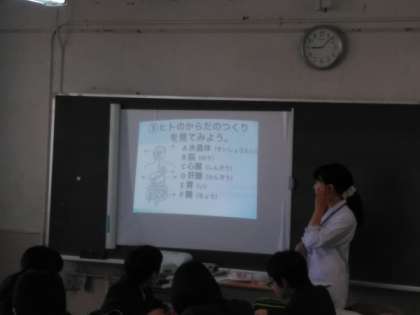 ①ヒトのからだのつくり
を見てみよう。
A 水晶体(すいしょうたい)
B 脳(のう)
C 心臓(しんぞう)
D 肝臓(かんぞう)
E 胃(い)
F 腸(ちょう)